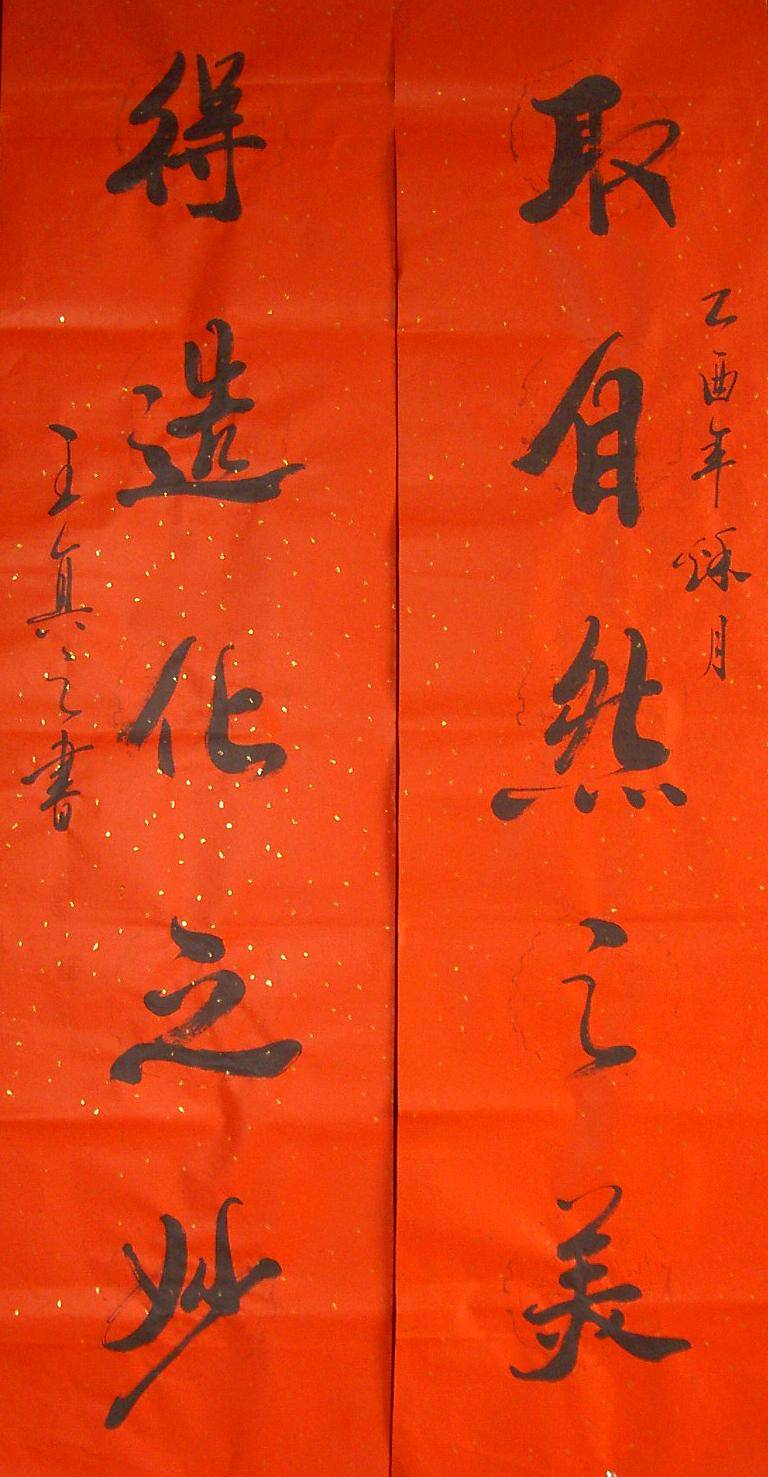 乙酉年秌月
取自然之美
得造化之妙
王真之书